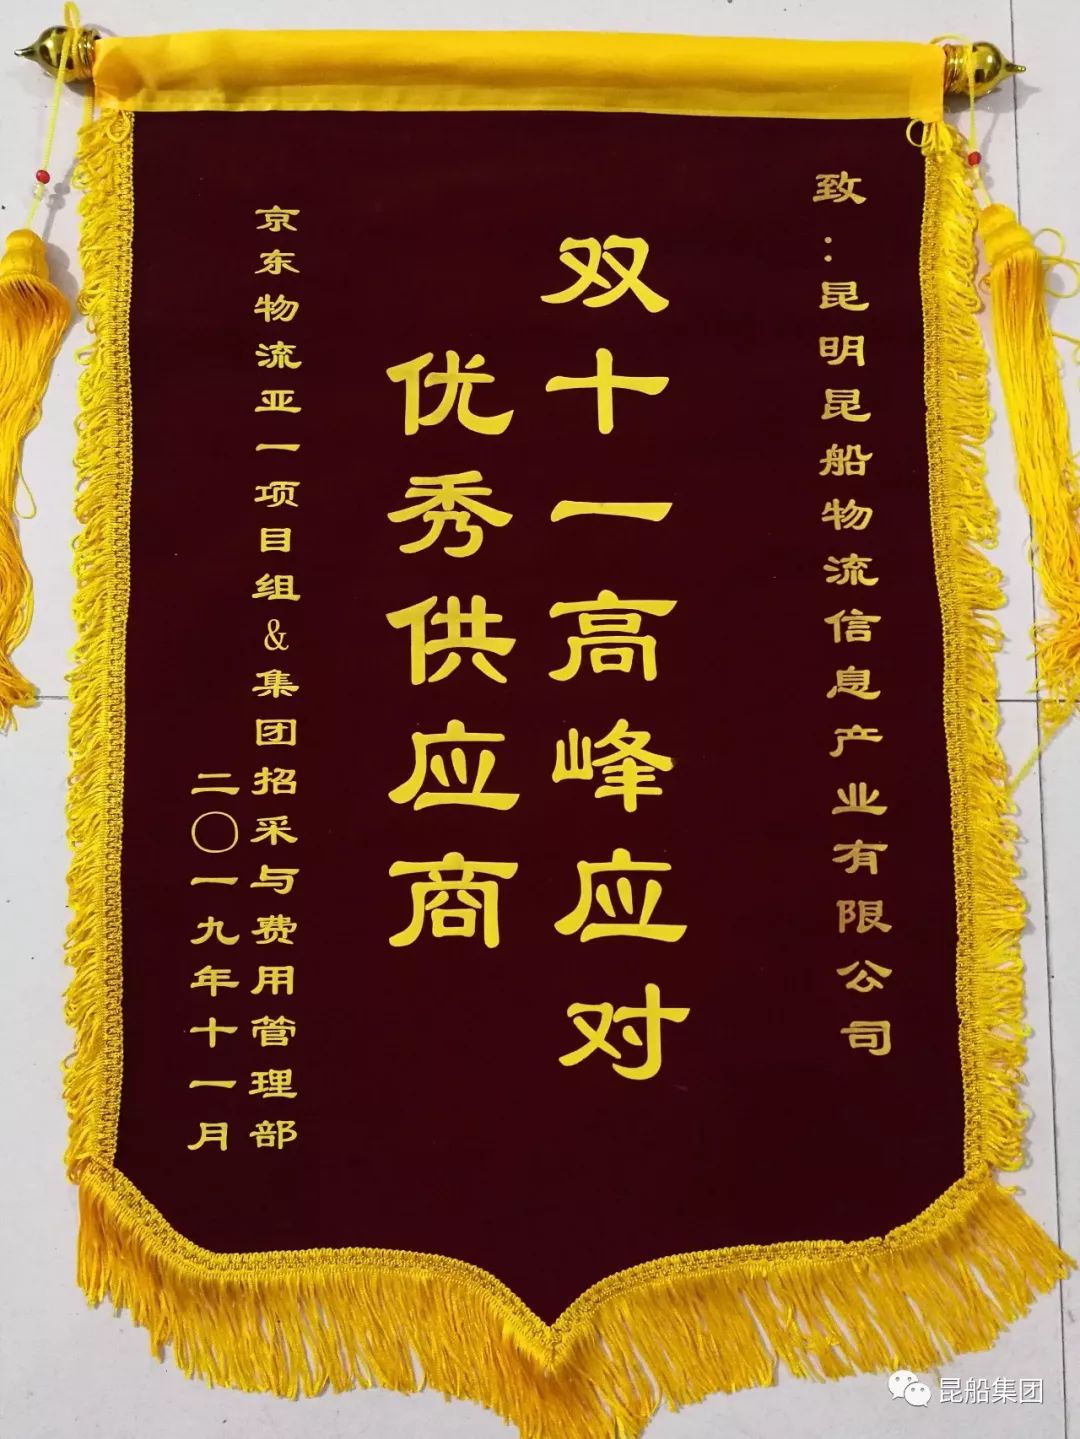 致：昆明昆船物流信息产业有限公司
双十一高峰应对
优秀供应商
京东物流亚一项目组&集团招采与费用管理部
二〇一九年十一月
昆船集团